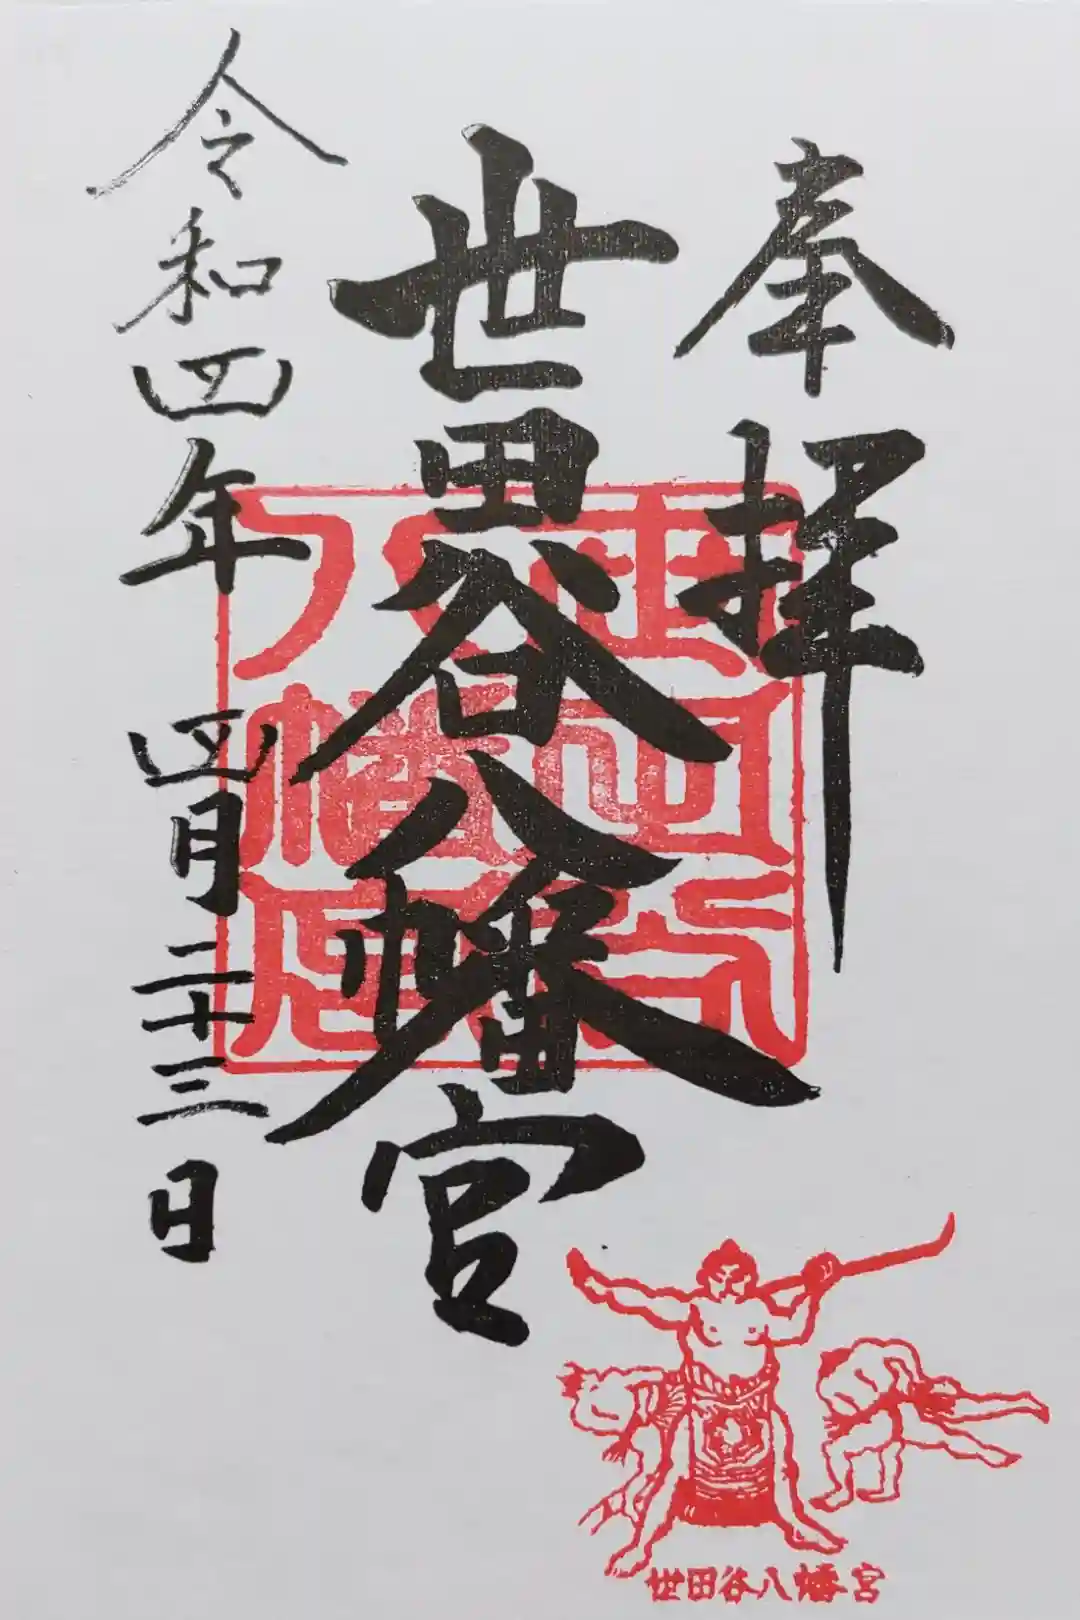 奉拝
世田谷八幡宮
令和四年 四月二十三日
世田谷
八幡宮
世田谷八幡宮